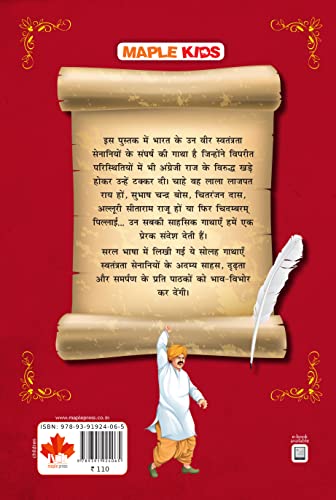 MAPLE KIDS
इस पुस्तक में भारत के उन वीर स्वतंत्रता
सेनानियों के संघर्ष की गाथा है जिन्होंने विपरीत
परिस्थितियों में भी अंग्रेजी राज के विरुद्ध खड़े
होकर उन्हें टक्कर दी। चाहे वह लाला लाजपत
राय हों, सुभाष चन्द्र बोस, चितरंजन दास,
अल्लूरी सीताराम राजू हों या फिर चिदम्बरम्
पिल्लाई... उन सबकी साहसिक गाथाएँ हमें एक
प्रेरक संदेश देती हैं।
सरल भाषा में लिखी गई ये सोलह गाथाएँ
स्वतंत्रता सेनानियों के अदम्य साहस, दृढ़ता
और समर्पण के प्रति पाठकों को भाव-विभोर
कर देंगी।
www.maplepress.co.in
ISBN: 978-93-91924-06-5
9 789391 924065
₹ 110
children
maple press
e-book
available